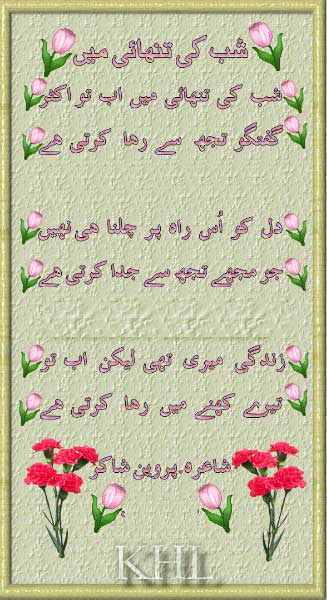 شب کی تنہائی میں
شب کی تنہائی میں اب تو اکثر
گفتگو تجھ سے رھا کرتی ھے
دل کو اُس راہ پر چلنا ھی نہیں
جو مجھے تجھ سے جدا کرتی ھے
زندگی میری تھی لیکن اب تو
تیرے کھنے میں رھا کرتی ھے
شاعرہ۔پروین شاکر
KHL